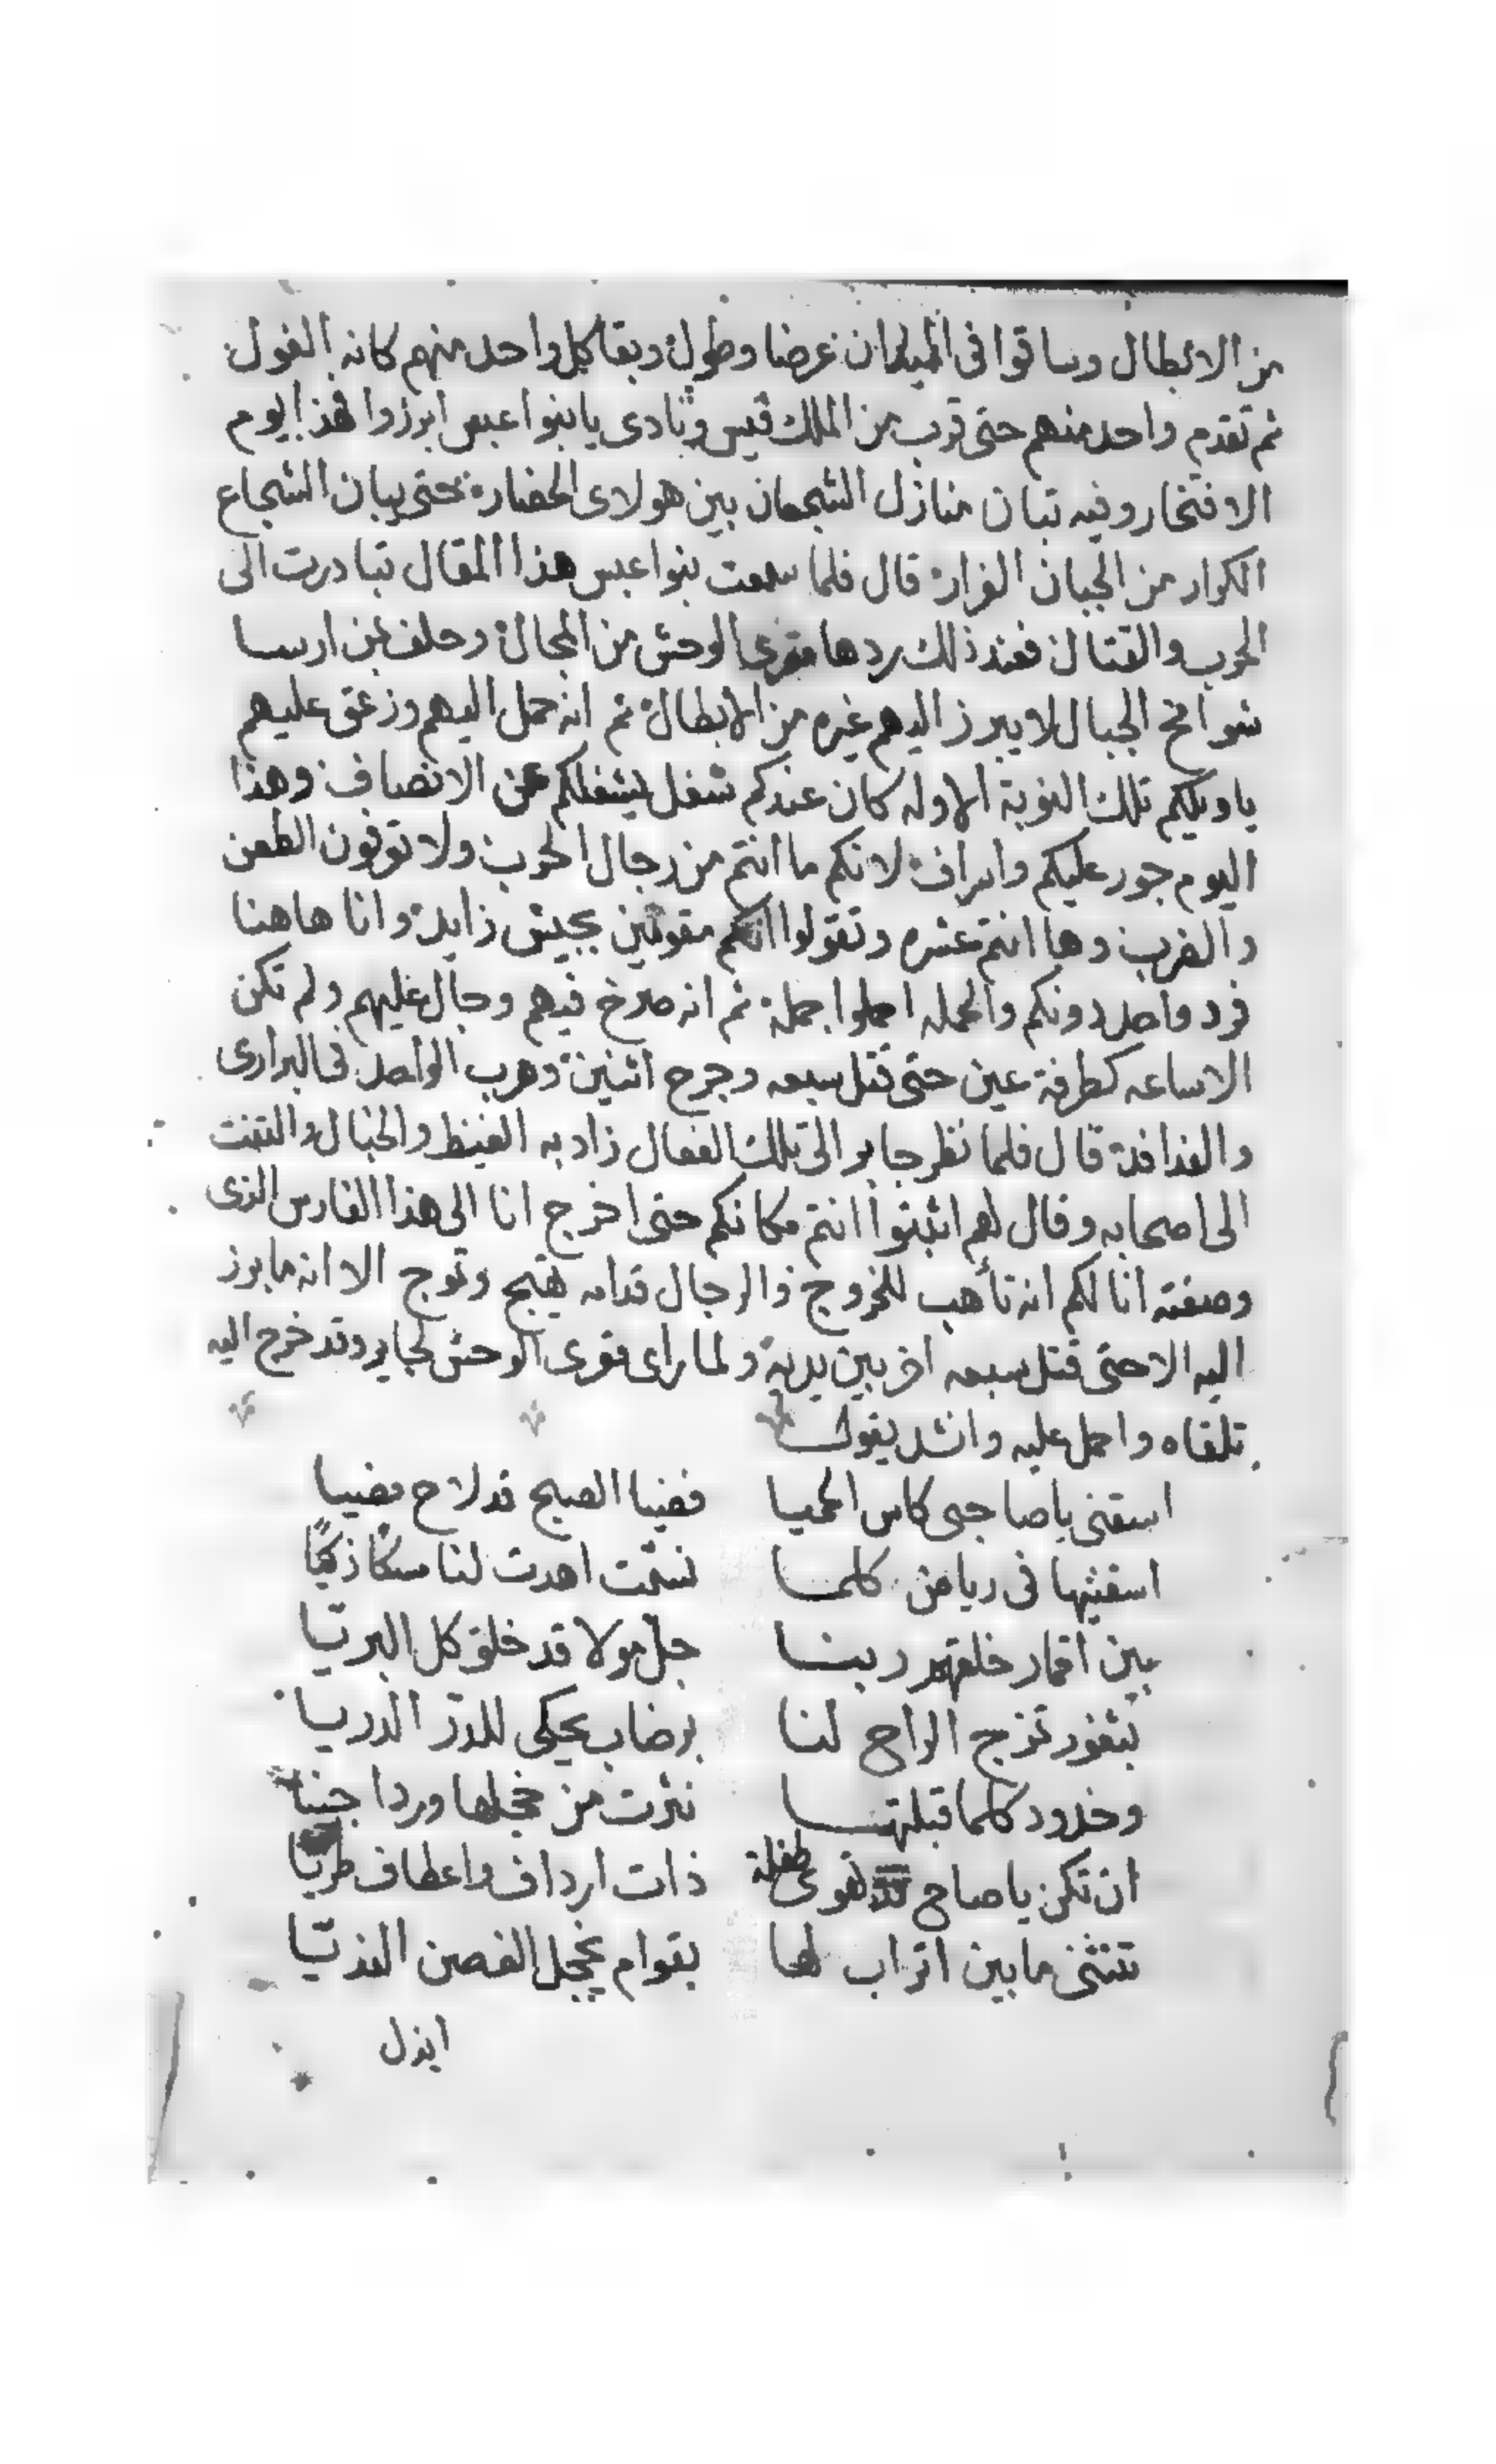 من الابطال وساقوا فى الميدان عرضا وطول وبقا كل واحد منهم كانه الغول
ثم تقدم واحد منهم حتى قرب من الملك قيس ونادى يا بنوا عبس ابرزوا فهذا يوم
الافتخار وفيه تبان منازل الشجعان بين هولاى الحضاره حتى يبان الشجاع
الكرار من الجبان الفرار قال فلما سمعت بنوا عبس هذا المقال تبادرت الى
الحرب والقتال فعند ذلك ردها مقرى الوحش من المجال وحلف بمن ارسا
شوامخ الجبال لا يبرز اليهم غيره من الابطال ثم انه حمل اليهم وزعق عليهم
يا ويلكم تلك النوبة الاوله كان عندكم شغل يشغلكم عن الانصاف وهذا
اليوم جور عليكم واسراف لانكم ما انتم من رجال الحرب ولا توفون الطعن
والضرب وها انتم عشره وتقولوا انكم مقومين بجيش زايد وانا هاهنا
فرد واحد دونكم والحمله احملوا جملة ثم انه صرخ فيهم وجال عليهم ولم تكن
الا ساعه كطرفة عين حتى قتل سبعه وجرح اثنين وهرب الواحد فى البرارى
والفدافد قال فلما نظر جابر الى تلك الفعال زاد به الغيظ والخبال والتفت
الى اصحابه وقال لهم اثبتوا انتم مكانكم حتى اخرج انا الى هذا الفارس الذى
وصفته انا لكم انه تأهب للخروج والرجال قدامه يهيج وتموج الا انه ما برز
اليه الا حتى قتل سبعه اخر بين يديه ولما راى مقرى الوحش لجابر وقد خرج اليه
تلقاه واحمل عليه وانشد يقول
اسقنى يا صاحبى كاس الحميا فضيا الصبح قد لاح مضيا
اسقنيها فى رياض كلما نسمت اهدت لنا مسكًا زكيًا
بين اقمار خلقهم ربنا جل مولا قد خلق كل البريّا
بثغور تمزج الراح لنا برضاب يحكى للدرّ الدريا
وخدود كلما قبلتها نثرت من خجلها وردا جنيا
ان تكن يا صاح تهوى طفلة ذات ارداف واعطاف طريا
تنثنى ما بين اتراب لها بقوام يخجل الغصن النديّا
ابذل